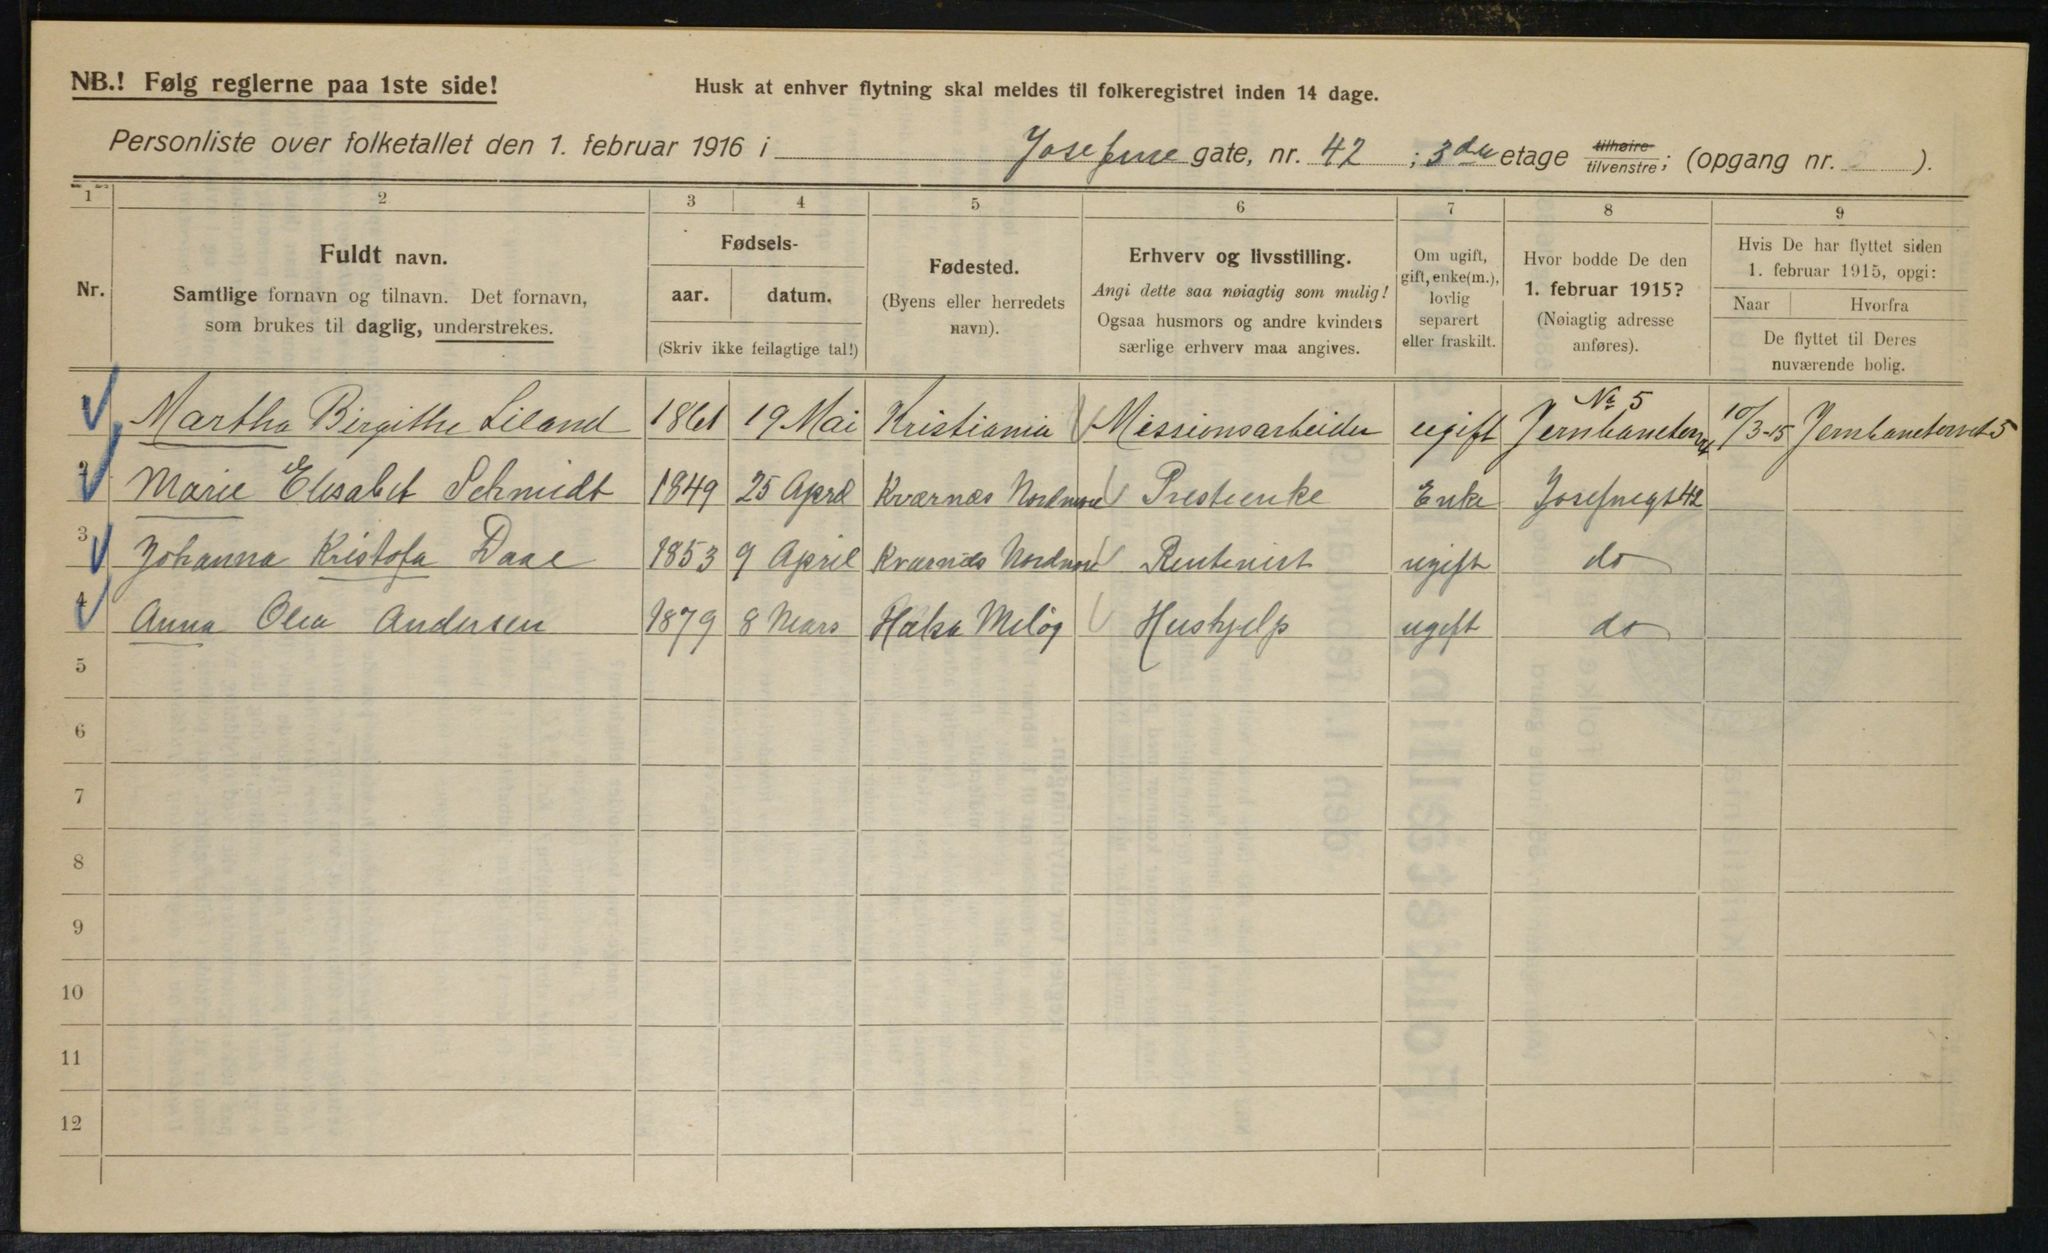 NB.! Følg reglerne paa 1ste side!
Husk at enhver flytning skal meldes til folkeregistret inden 14 dage.
Personliste over folketallet den 1. februar 1916 i Josefine gate, nr. 42 ; 3die etage tilhøire/tilvenstre; (opgang nr. ).
1 2 3 4 5 6 7 8 9
Nr.
Fuldt navn.
Samtlige fornavn og tilnavn. Det fornavn,
som brukes til daglig, understrekes.
Fødsels-
aar. datum.
(Skriv ikke feilagtige tal!)
Fødested.
(Byens eller herredets
navn).
Erhverv og livsstilling.
Angi dette saa nøiagtig som mulig!
Ogsaa husmors og andre kvinders
særlige erhverv maa angives.
Om ugift,
gift, enke(m.),
lovlig
separert
eller fraskilt.
Hvor bodde De den
1. februar 1915?
(Nøiagtig adresse
anføres).
Hvis De har flyttet siden
1. februar 1915, opgi:
Naar Hvorfra
De flyttet til Deres
nuværende bolig.
Martha Birgithe Liland 1861 19 Mai Kristiania Missionsarbeider ugift No 5 Jernbanetorvet 10/3-15 Jernbanetorvet 5
2 Marie Elisabet Schmidt 1849 25 April Kværnæs Nordmøre Presteenke Enke Josefinegt 42
3 Johanna Kristofa Daae 1853 9 April Kværnæs Nordmøre Rentenist ugift do
4 Anna Olea Andersen 1879 8 Mars Hushjelp ugift do
5
6
7
8
9
10
11
12